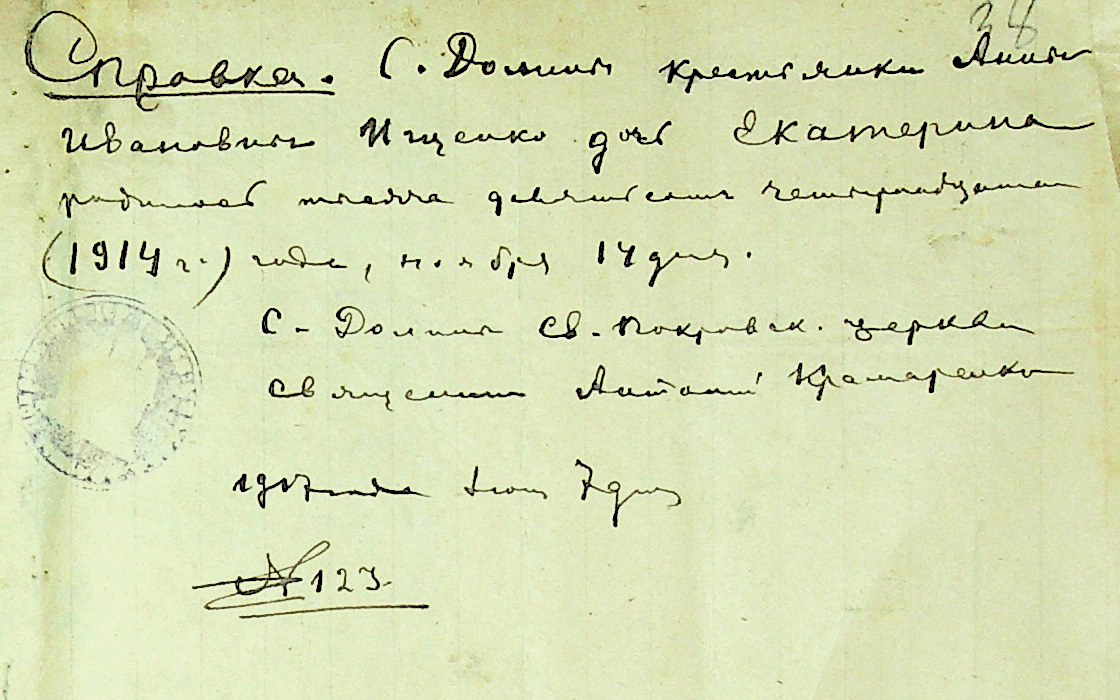 38
Справка. С. Долины крестьянки Анны
Ивановны Ищенко дочь Екатерина
родилась тысяча девятьсотъ четырнадцатаго
(1914 г.) года, ноября 14 дня.
С. Долины Св. Покровск. церкви
Священникъ Антоній Крамаренко
1917 года Іюня 7 дня
№ 123